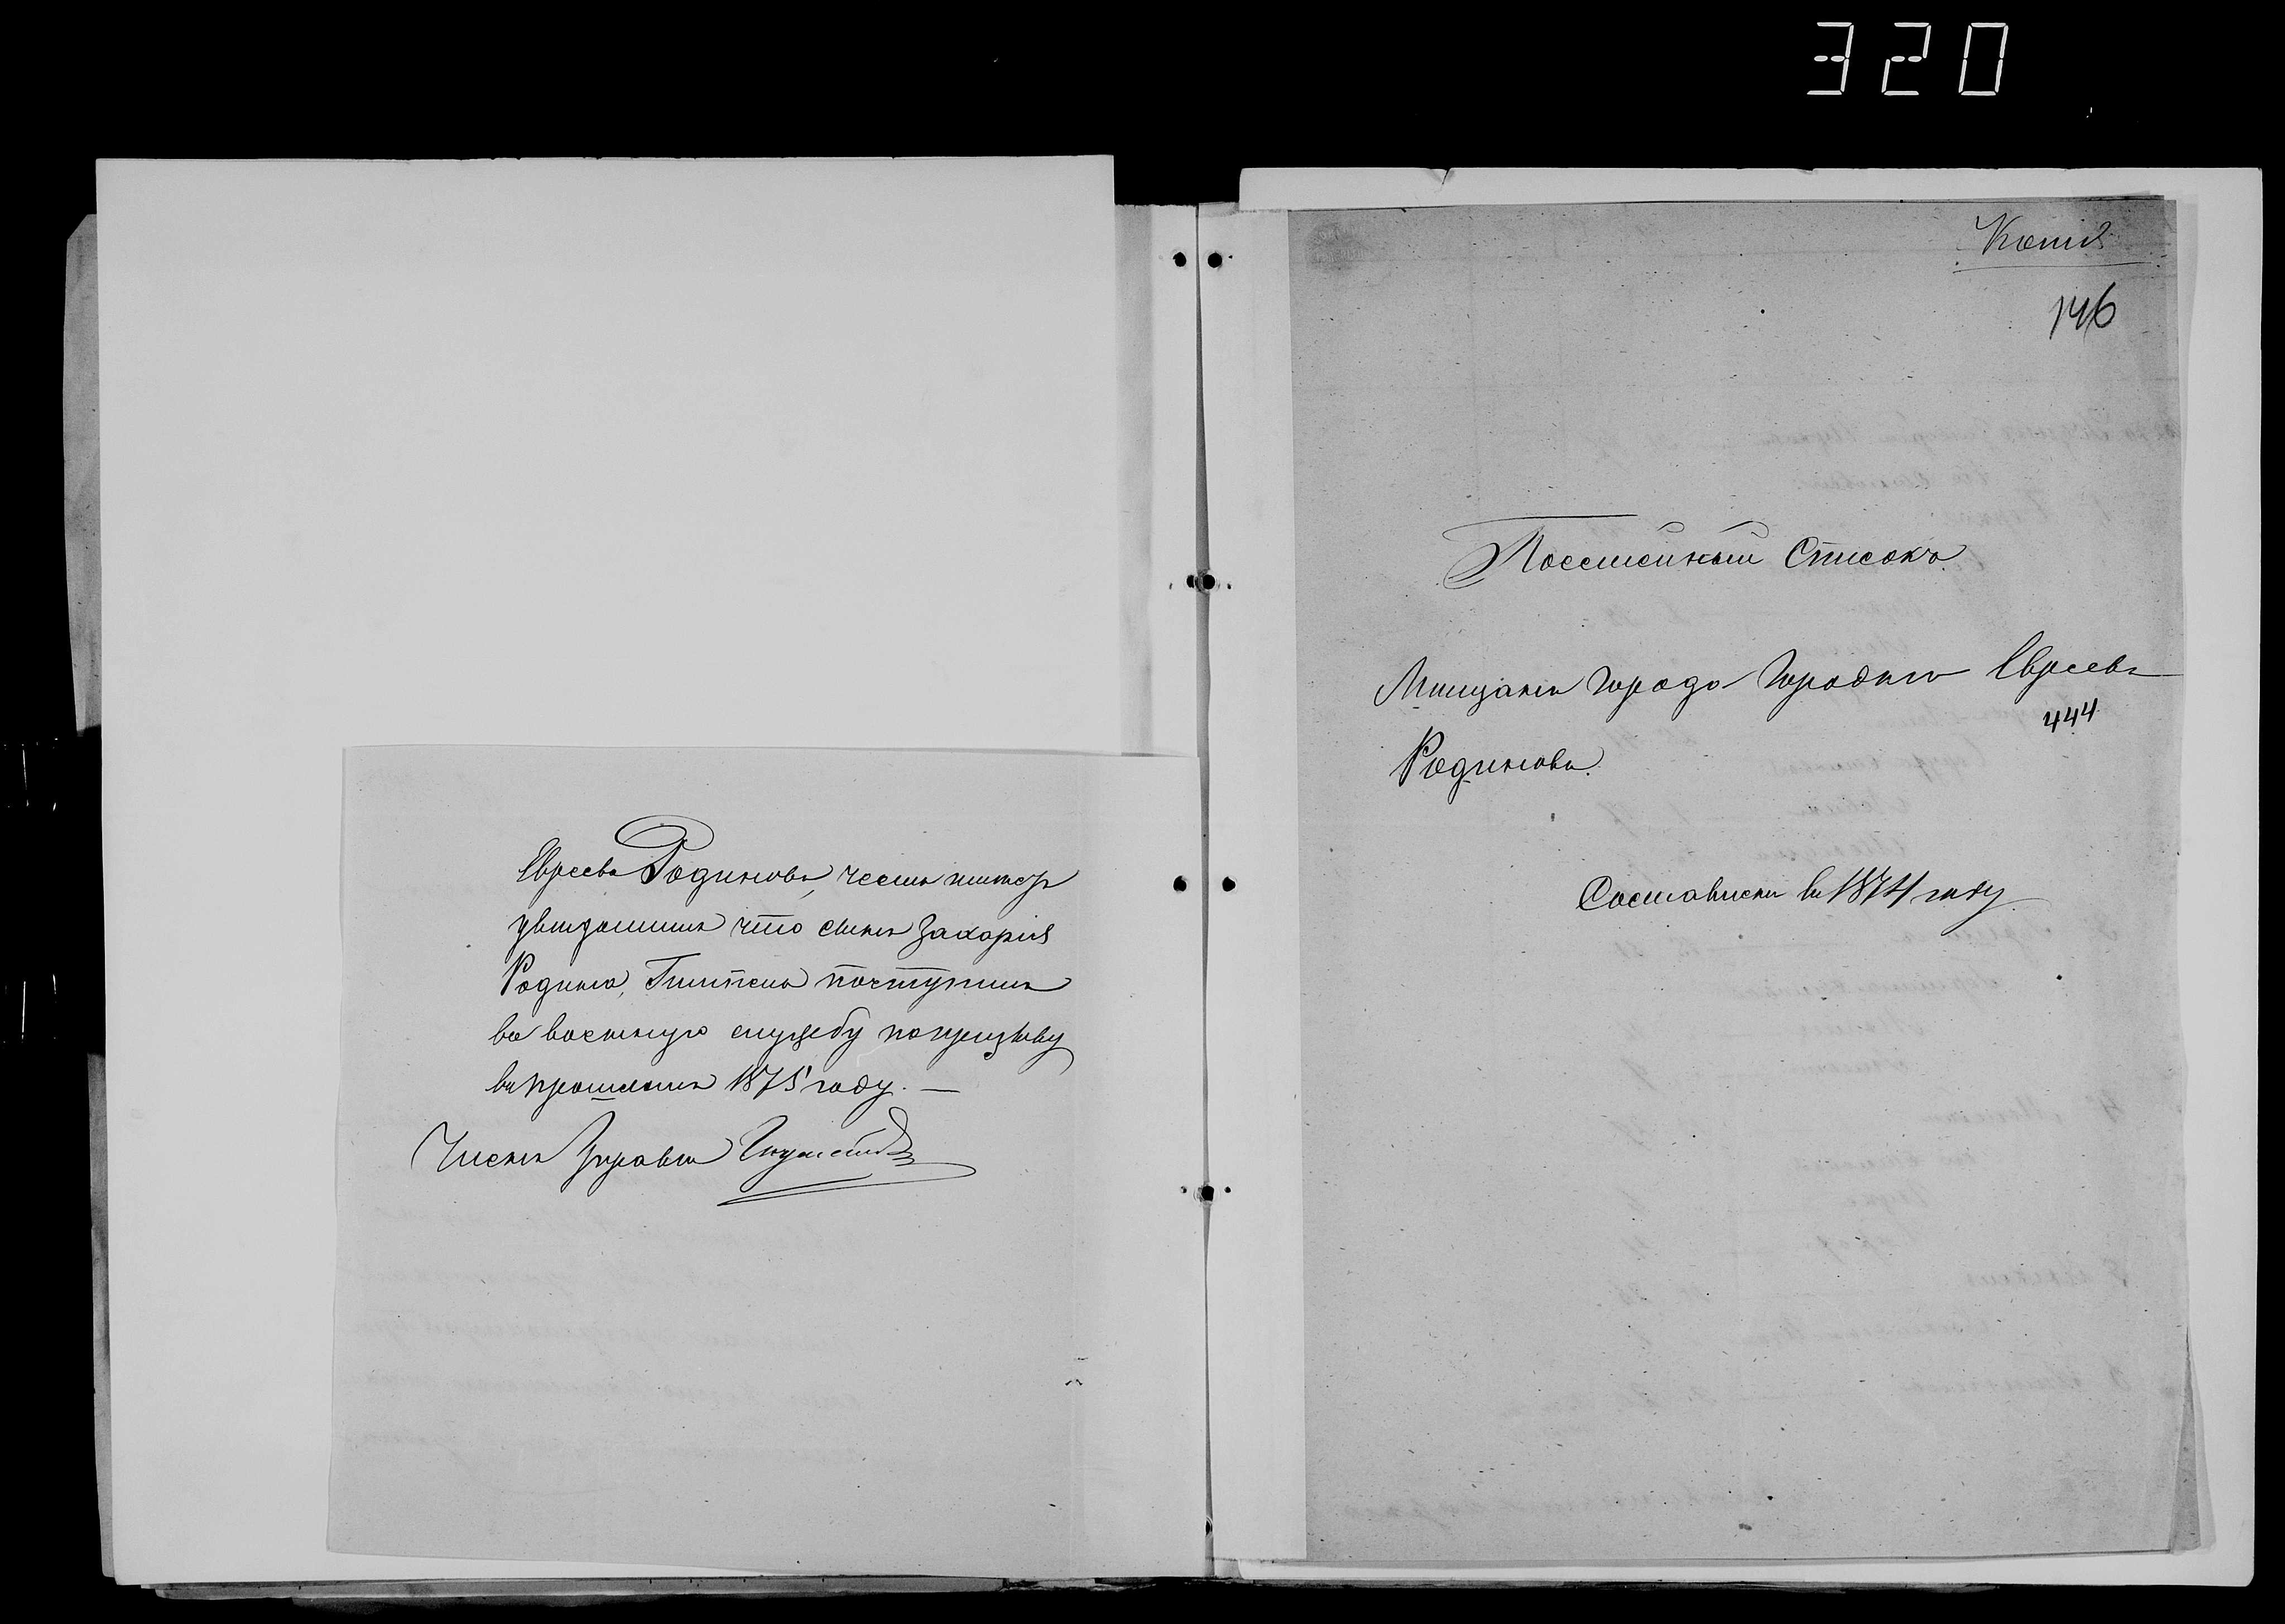 320
Евреевъ Родиновъ, честь имѣетъ
увѣдомить что сынъ Захарія
Родина, поступилъ
въ военную службу по призыву
въ прошломъ 1875 году. —
Членъ Управы
Копія
146
Посемейный Списокъ
Мѣщанъ города Городка Евреевъ
444
Родиновъ.
Составленъ въ 1874 году